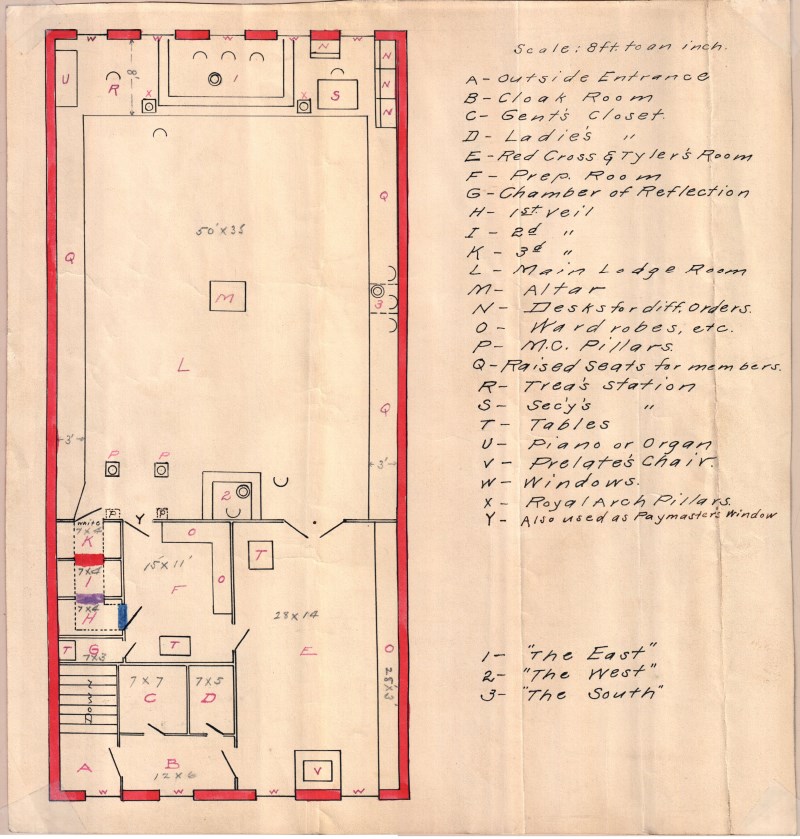 Scale: 8ft. to an inch.
A - Outside Entrance
B - Cloak Room
C - Gent's Closet.
D - Ladie's "
E - Red Cross & Tyler's Room
F - Prep. Room
G - Chamber of Reflection
H - 1st Veil
I - 2d "
K - 3d "
L - Main Lodge Room
M - Altar
N - Desks for diff. Orders.
O - Wardrobes, etc.
P - M.C. Pillars.
Q - Raised Seats for members.
R - Trea's Station
S - Sec'y's "
T - Tables
U - Piano or Organ
V - Prelate's Chair.
W - Windows.
X - Royal Arch Pillars.
Y - Also used as Paymaster's Window
1 - "The East"
2 - "The West"
3 - "The South"
W W W W
U
R
8'
1
N
N
N
N
S
X X
50' x 35'
Q
Q
M
3
L
Q
3'
3'
P P
2
P P
Y
White
7x4
K
7x4
I
7x4
H
T G
7x3
O
O
15'x11'
F
T
T
28x14
E
O
7x7
C
7x5
D
Down
A
B
12x6
V
W W W W